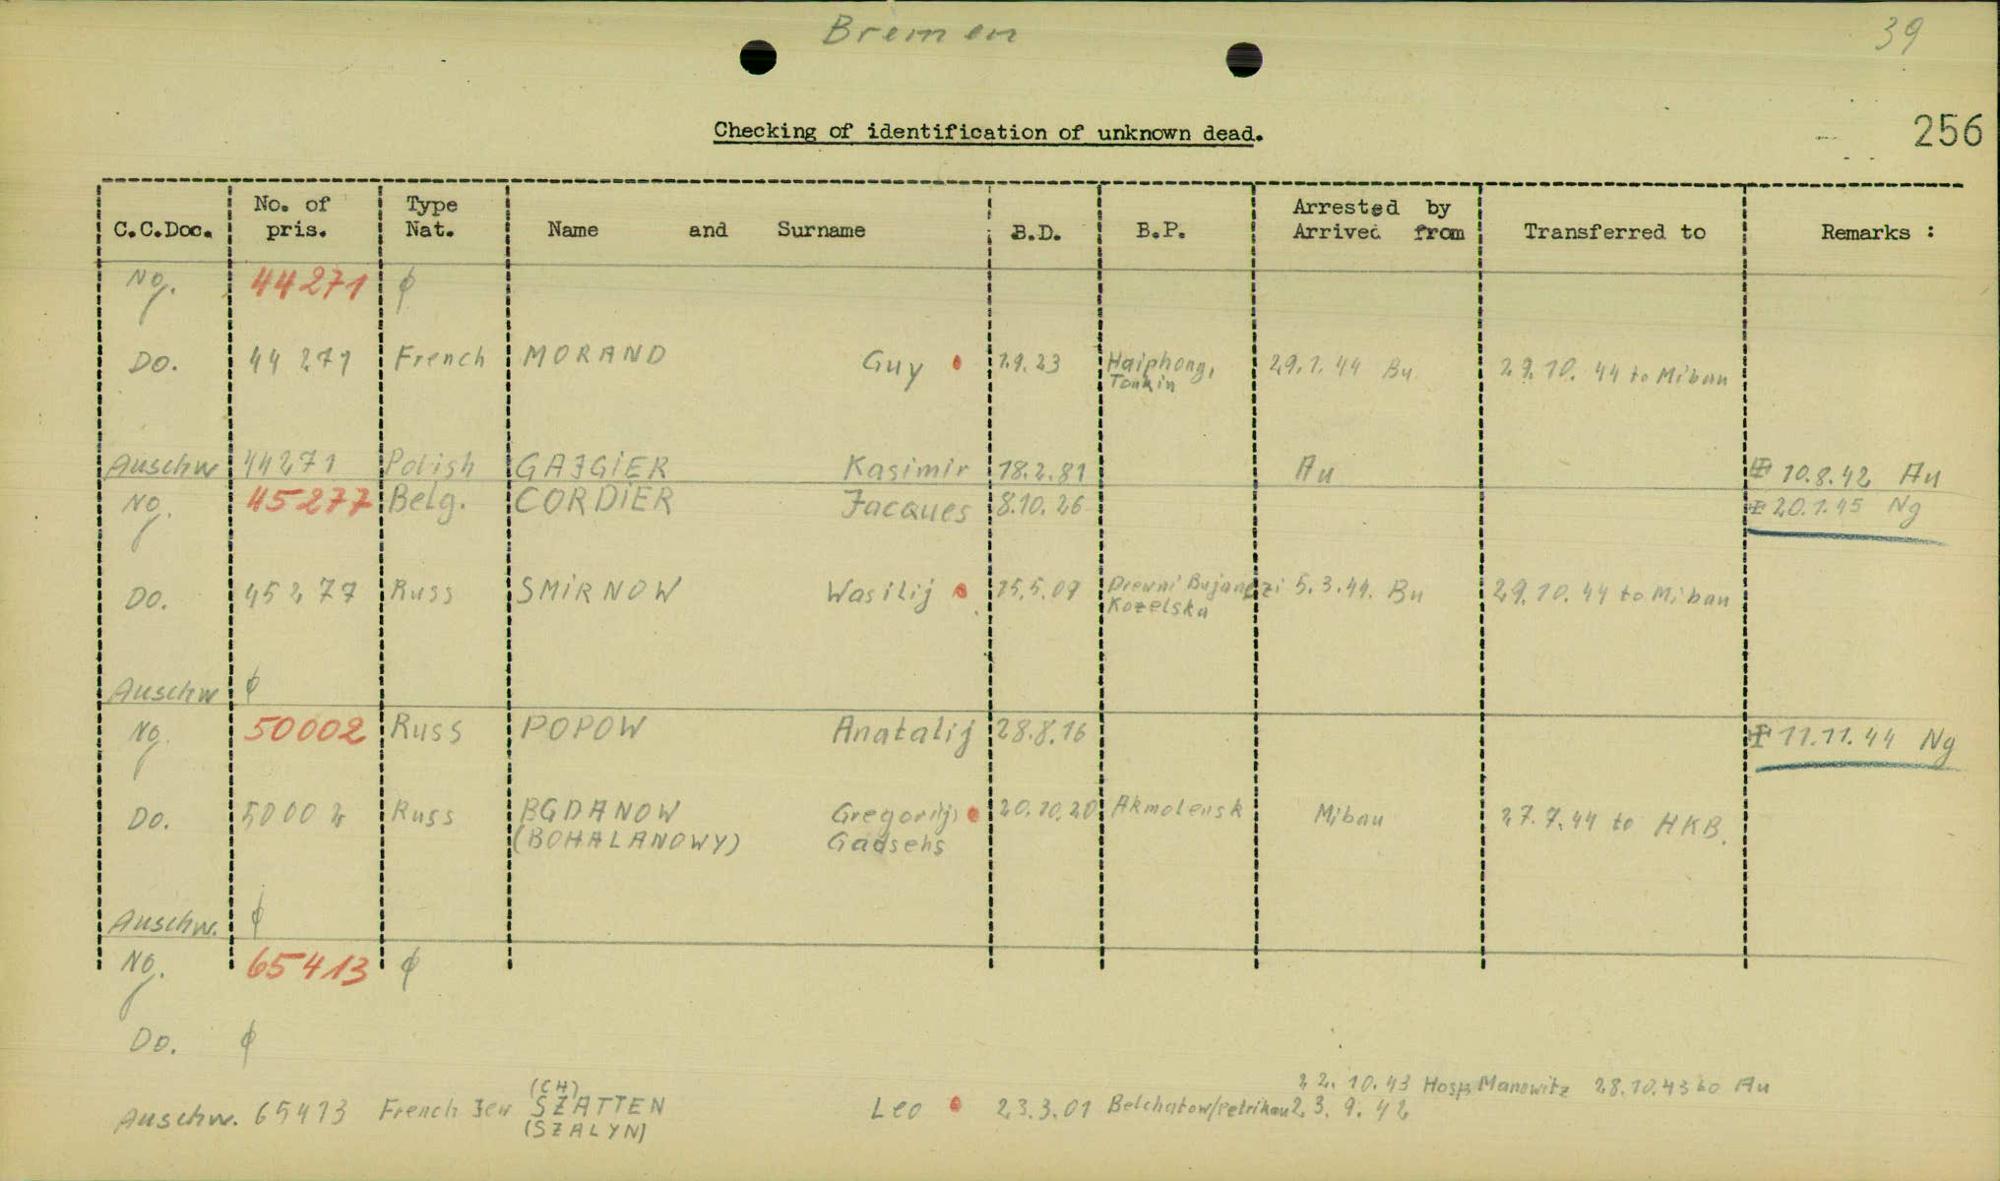 Bremen
39
Checking of identification of unknown dead.
256
C.C.Doc. No. of pris. Type Nat. Name and Surname B.D. B.P. Arrested by Arrived from Transferred to Remarks :
Ng. 44271 ϕ
Do. 44271 French MORAND Guy 1.9.23 Haiphong, Tonkin 29.1.44 Bu 29.10.44 to Mibau
Auschw 44271 Polish GAJGIER Kasimir 18.2.81 Au 10.8.42 Au
Ng. 45277 Belg. CORDIER Jacques 8.10.26 20.1.45 Ng
Do. 45277 Russ SMIRNOW Wasilij 15.5.07 Kozelska 5.3.44. Bu 29.10.44 to Mibau
Auschw ϕ
Ng. 50002 Russ POPOW Anatalij 28.8.16 11.11.44 Ng
Do. 50002 Russ BGDANOW Gregorij 20.10.20 Akmolensk Mibau 27.7.44 to HKB.
(BOHALANOWY) Gadsehs
Auschw. ϕ
Ng. 65413 ϕ
Do. ϕ
(CH) 22.10.43 Hosp Manowitz 28.10.43 to Au
Auschw. 65413 French Jew SZATTEN Leo 23.3.01 Belchatow/Petrikau 23.9.42
(SZALYN)